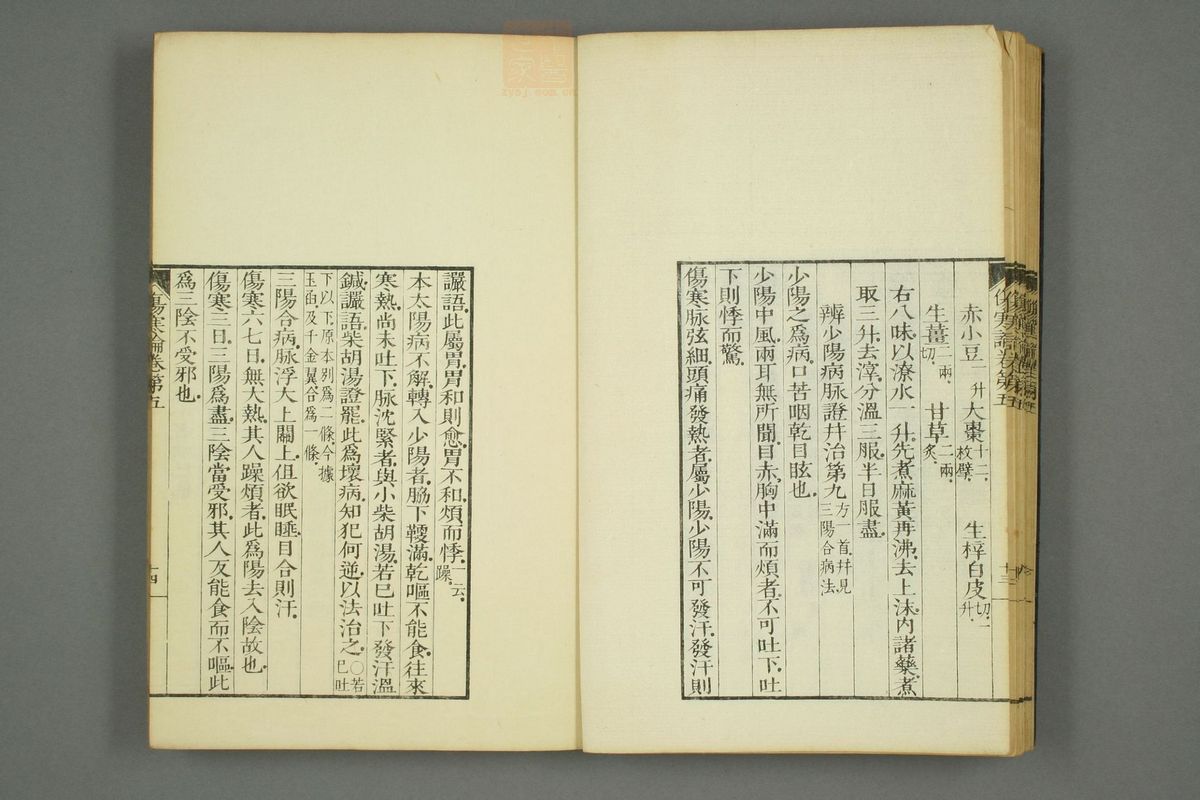 赤小豆一升大棗十二枚擘生梓白皮切一升
生薑二兩切甘草二兩炙
右八味以潦水一斗先煮麻黃再沸去上沫內諸藥煮
取三升去滓分溫三服半日服盡
辨少陽病脉證幷治第九方一首幷見三陽合病法
少陽之爲病口苦咽乾目眩也
少陽中風兩耳無所聞目赤胸中滿而煩者不可吐下吐
下則悸而驚
傷寒脉弦細頭痛發熱者屬少陽少陽不可發汗發汗則
讝語此屬胃胃和則愈胃不和煩而悸一云躁
本太陽病不解轉入少陽者脇下鞕滿乾嘔不能食往來
寒熱尚未吐下脉沈緊者與小柴胡湯若已吐下發汗溫
鍼讝語柴胡湯證罷此爲壞病知犯何逆以法治之○若已吐
下以下原本別爲二條今據玉函及千金翼合爲一條
三陽合病脉浮大上關上但欲眠睡目合則汗
傷寒六七日無大熱其人躁煩者此爲陽去入陰故也
傷寒三日三陽爲盡三陰當受邪其人反能食而不嘔此
爲三陰不受邪也
傷寒論卷第五
十四